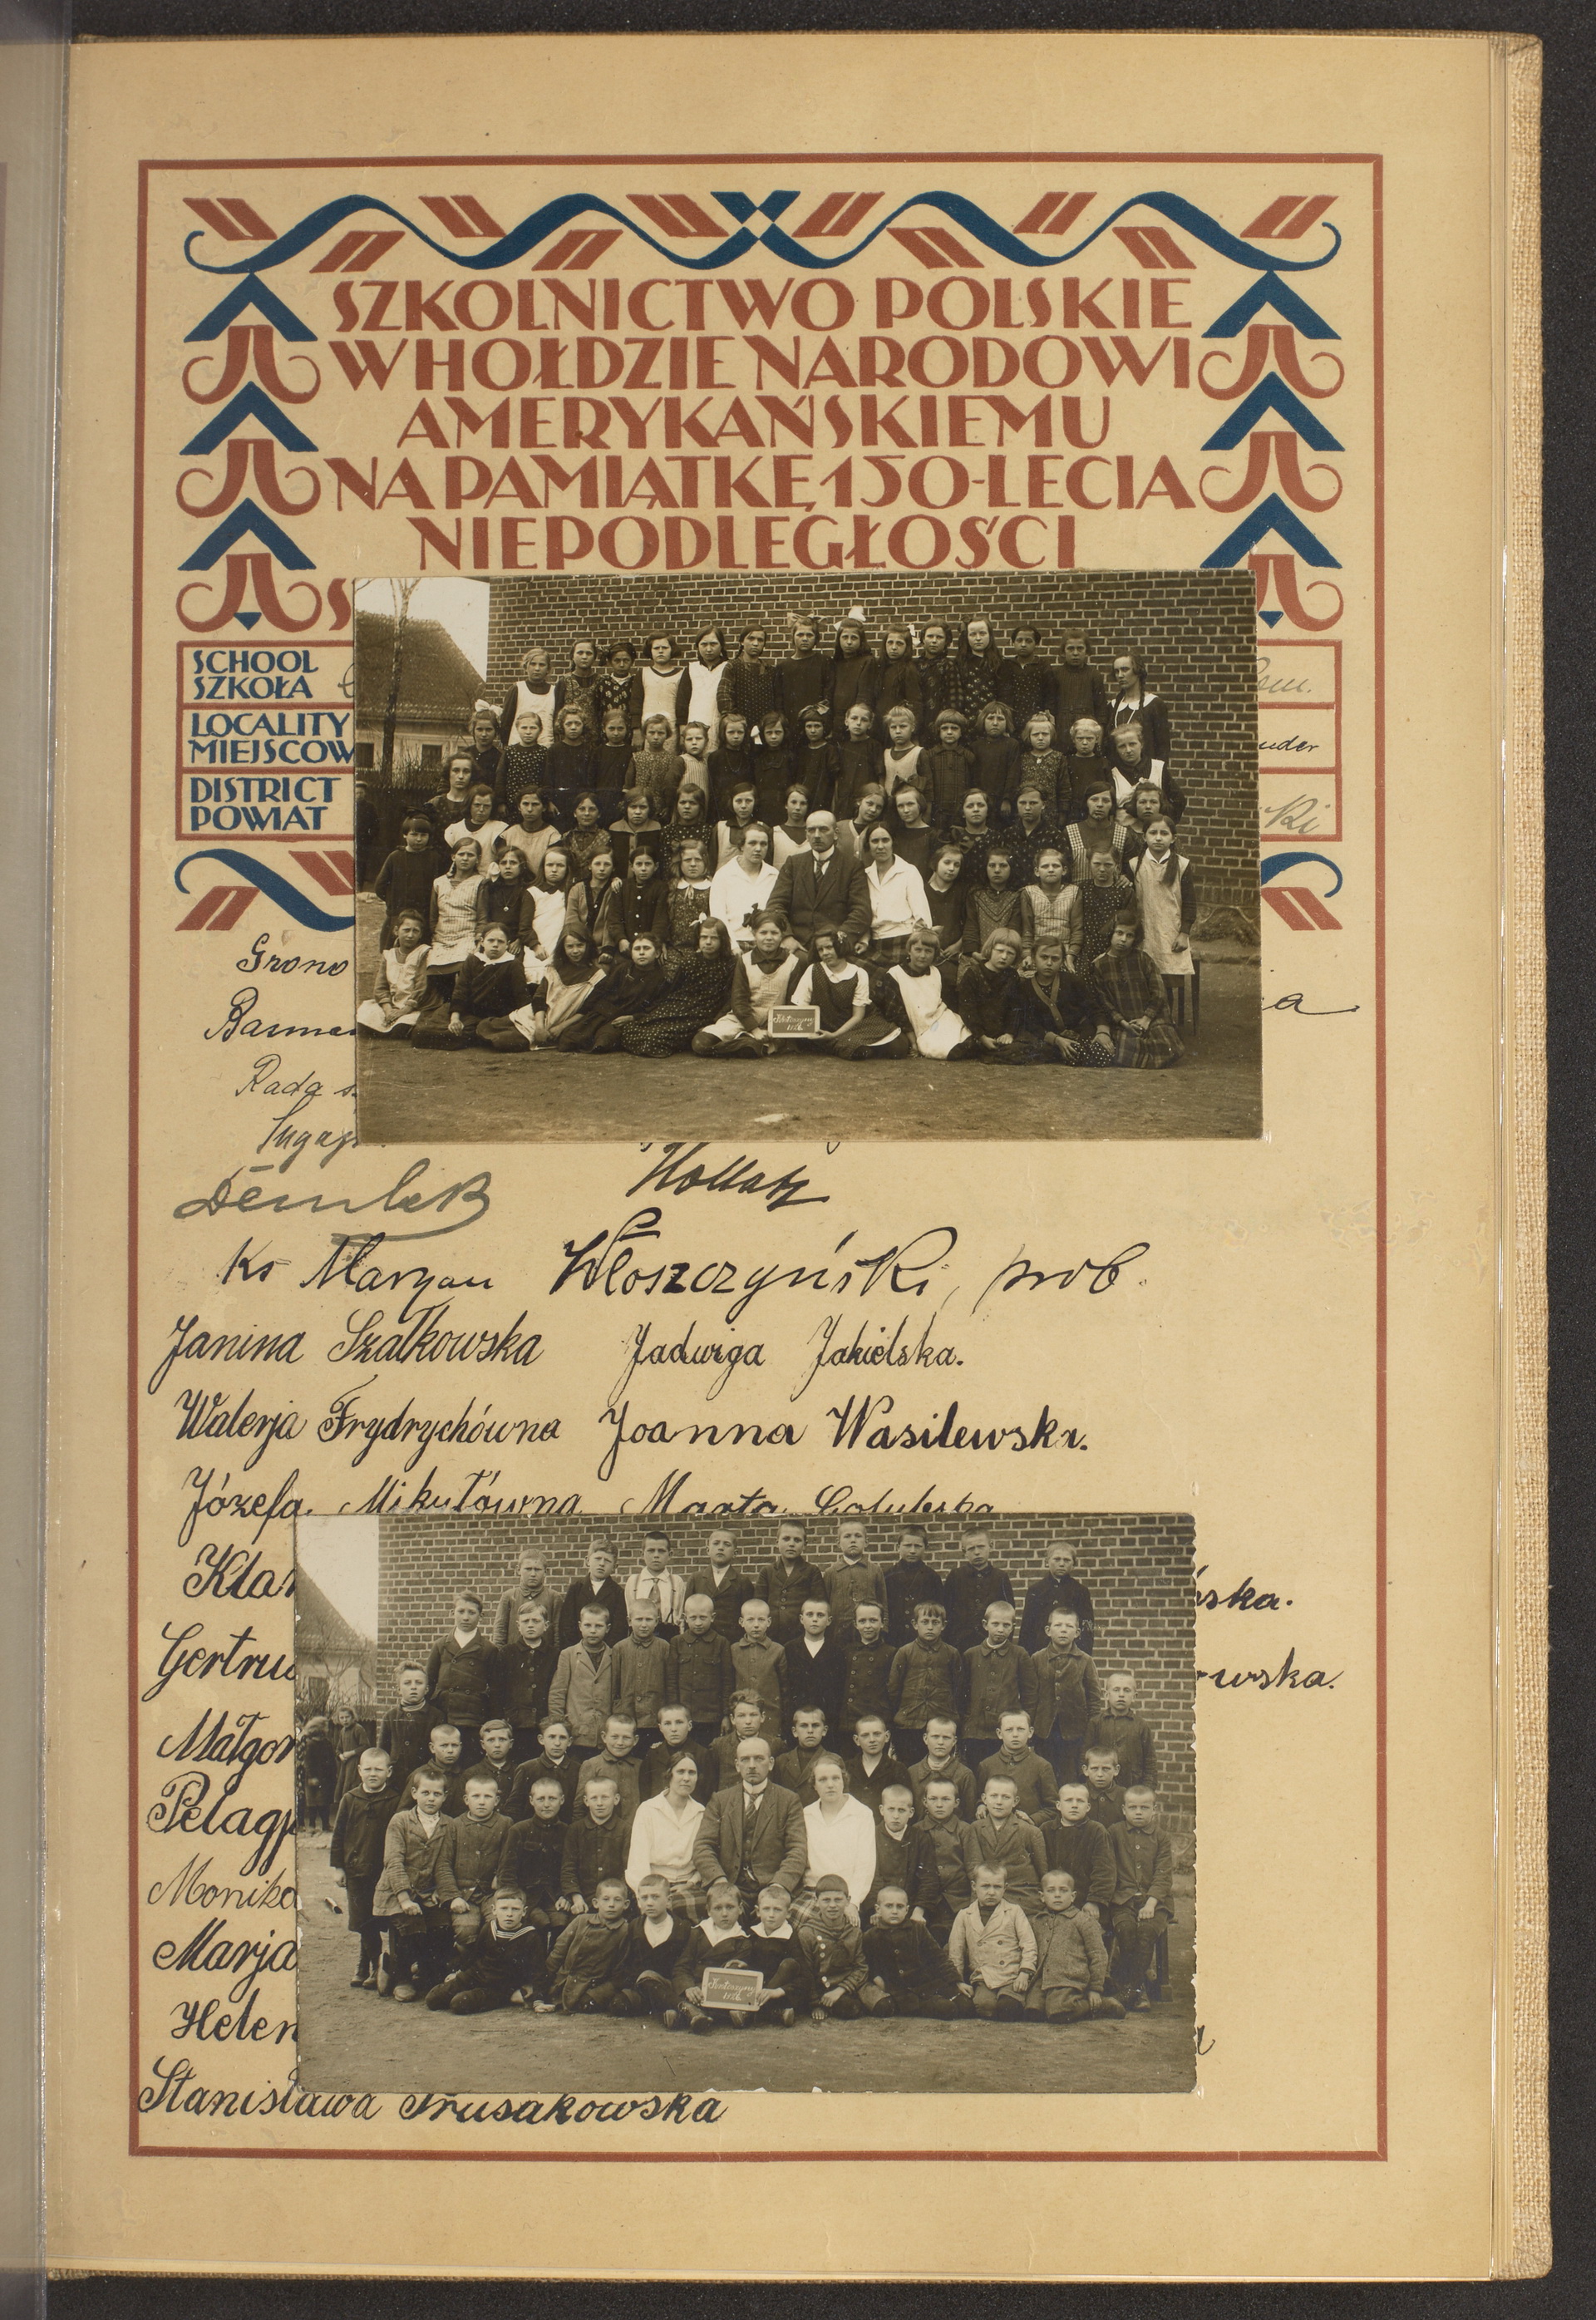 SZKOLNICTWO POLSKIE
W HOŁDZIE NARODOWI
AMERYKAŃSKIEMU
NA PAMIĄTKĘ 150-LECIA
NIEPODLEGŁOŚCI
S
SCHOOL
SZKOŁA
LOCALITY
MIEJSCOW
DISTRICT
POWIAT
ki
Grono
Rada
Ks Maryan Włoszczyński, prob.
Janina Szałkowska Jadwiga Jakielska.
Walerja Frydrychówna Joanna Wasilewska.
Józefa Mikułówna Marta
Klar
ńska.
Gertru
owska.
Małgor
Pelagj
Monika
Marja
Helen
Stanisława Trusakowska